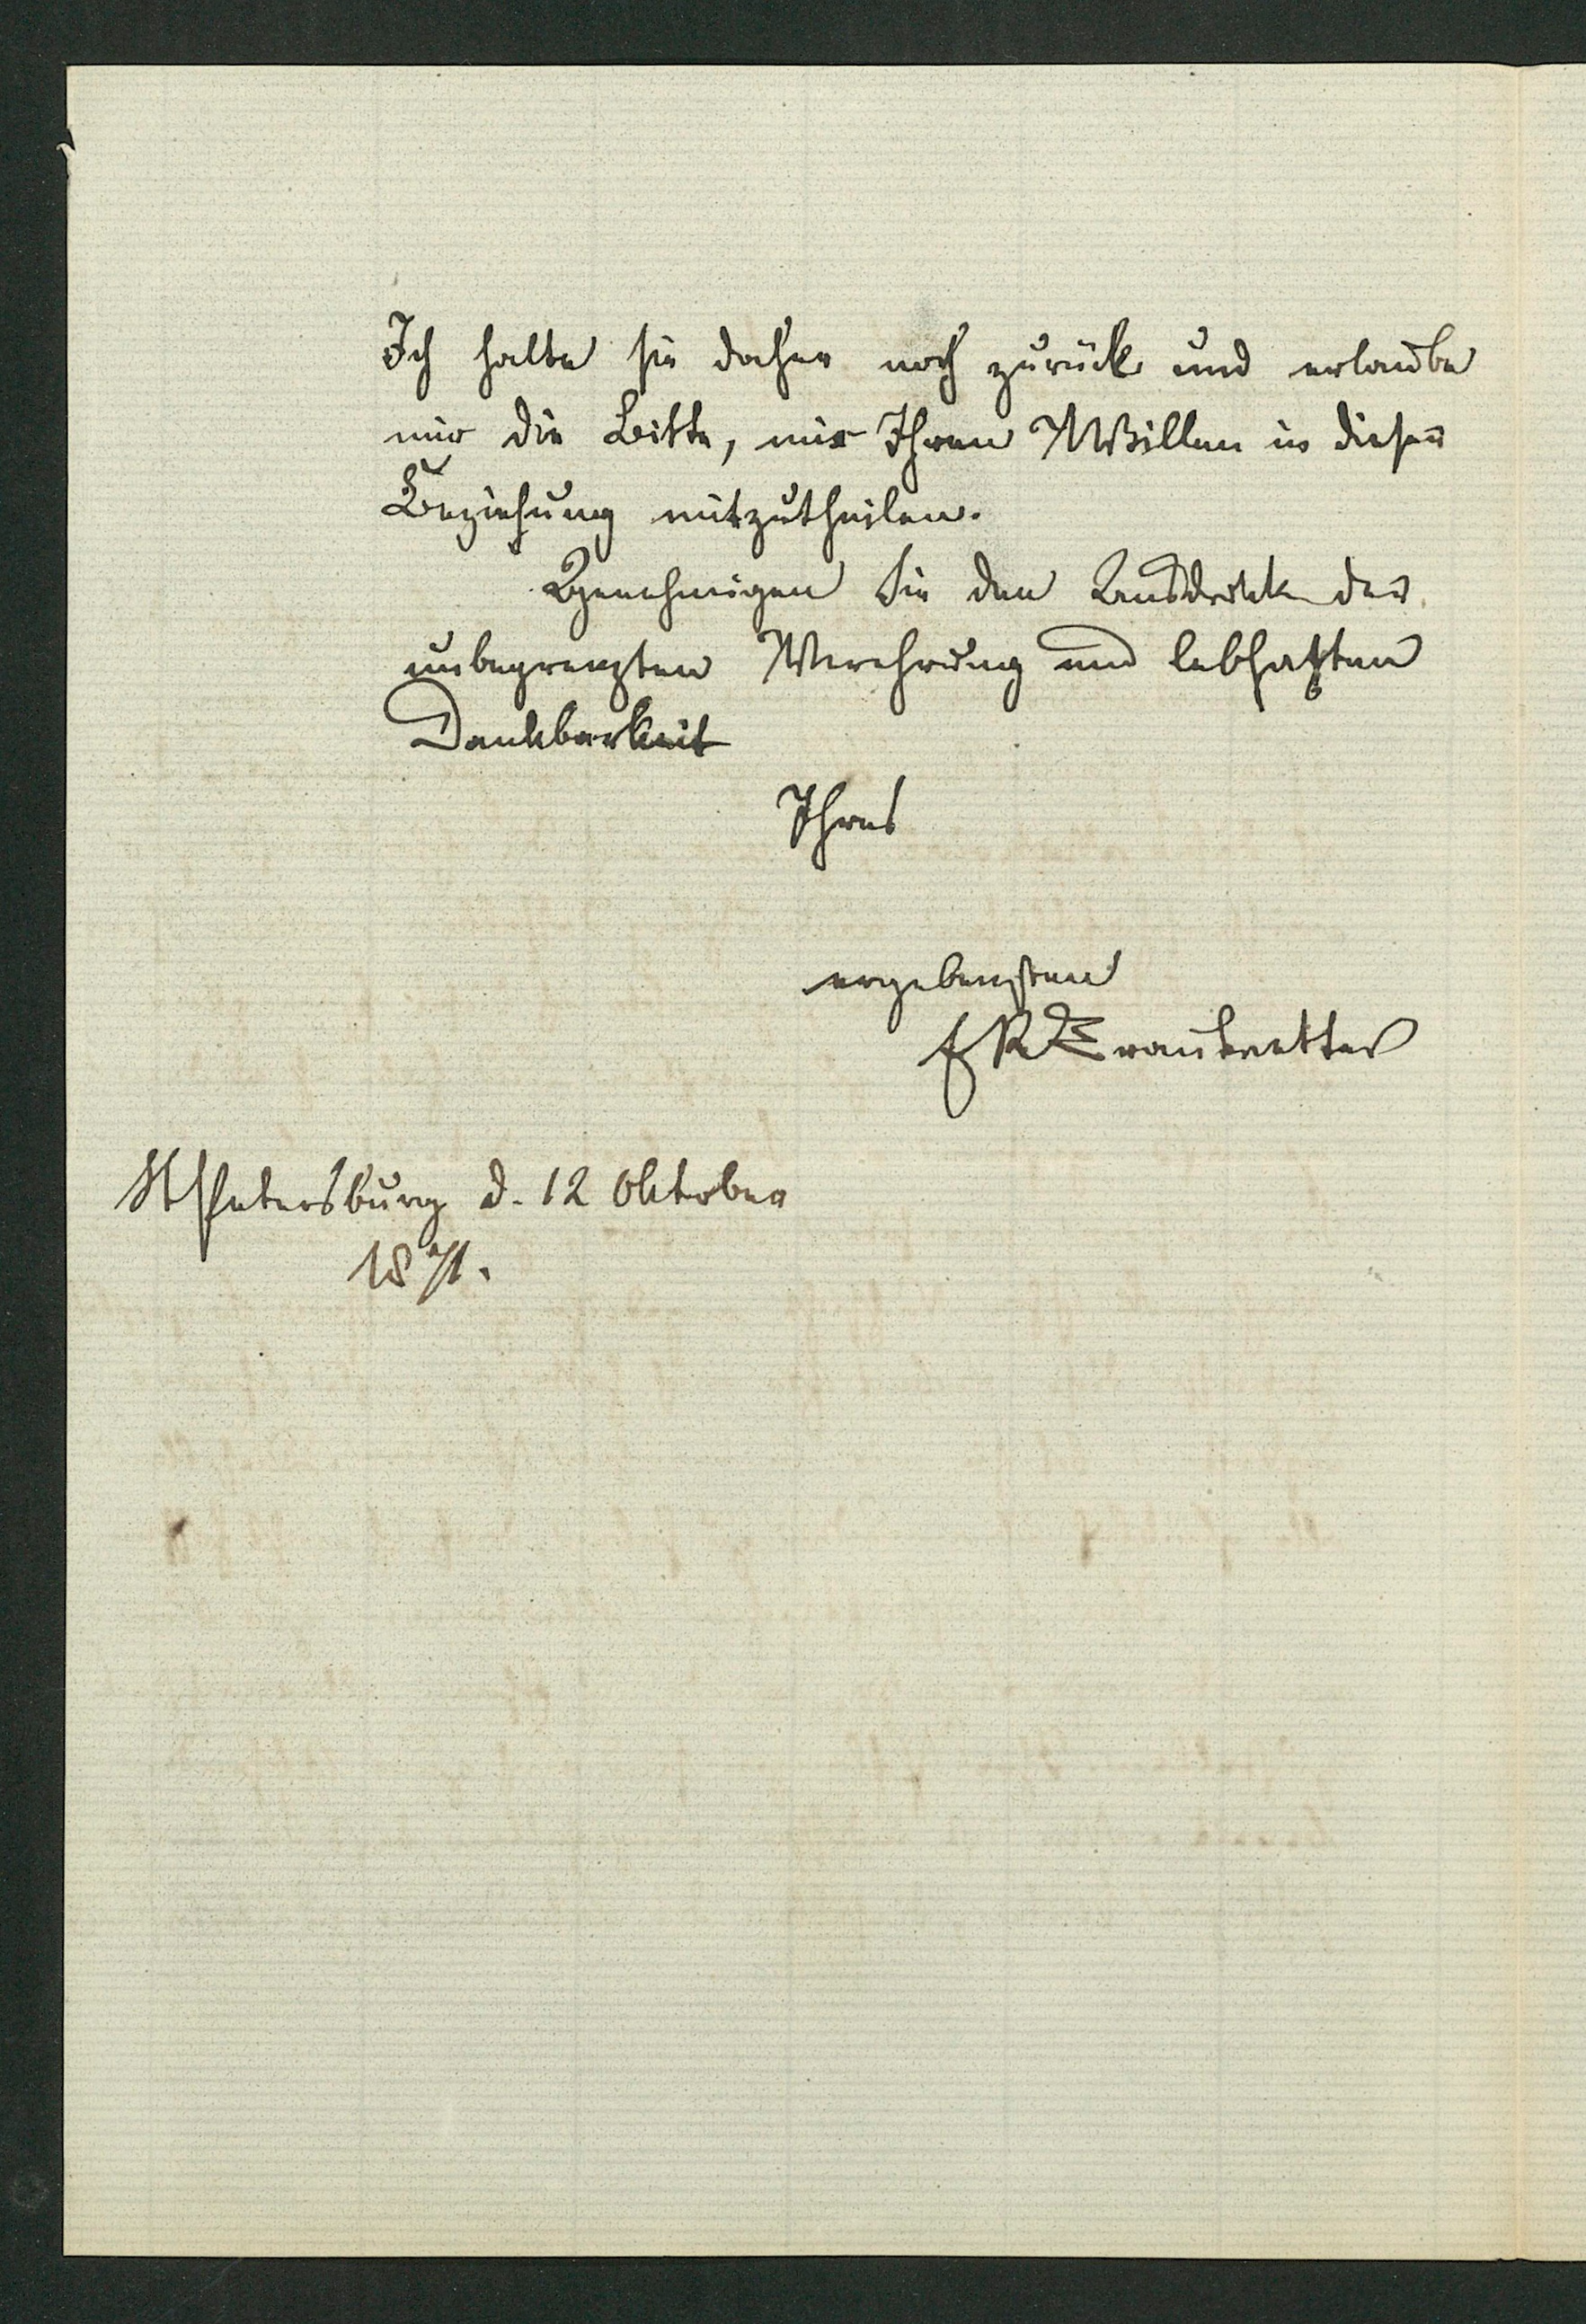 Ich halte sie daher noch zurück und erlaube
mir die Bitte, mir Ihren Willen in dieser
Beziehung mitzutheilen.
Genehmigen Sie den Ausdruck der
unbegrenzten Verehrung und lebhaften
Dankbarkeit
Ihres
ergebensten
StPetersburg d. 12 Oktober
1871.